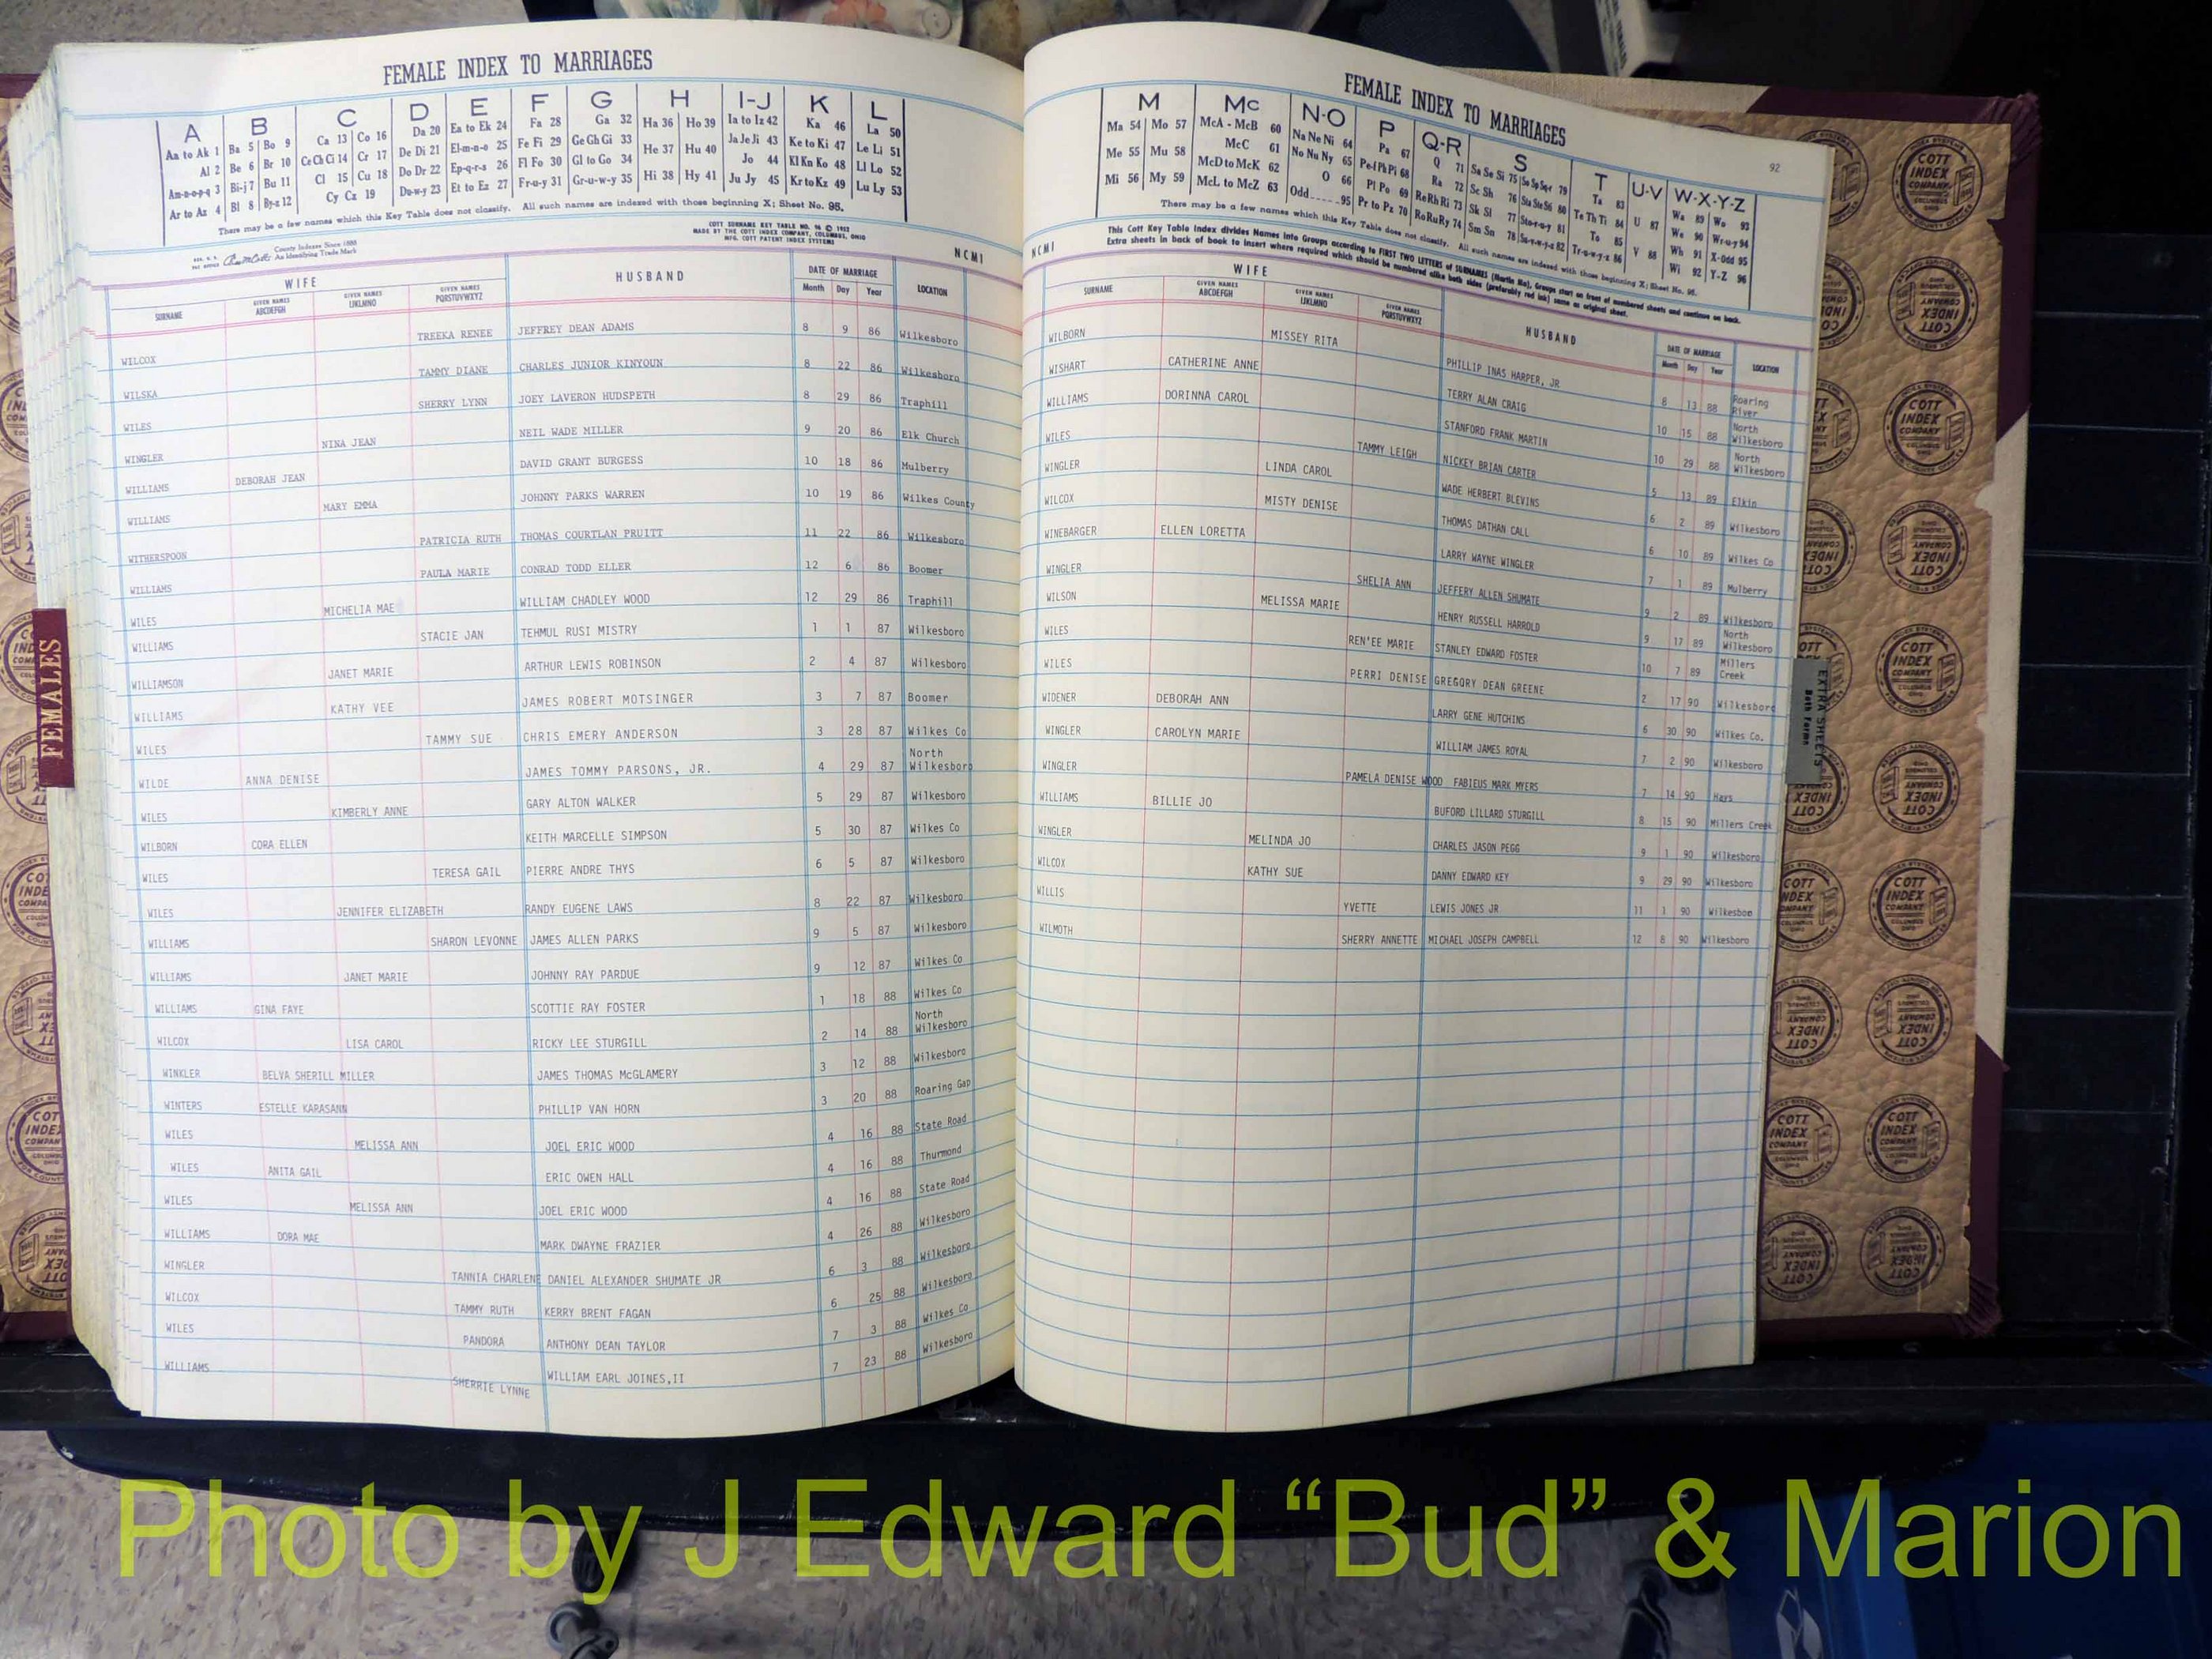 FEMALE INDEX TO MARRIAGES
A B C D E F G H I-J K L
Aa to Ak 1 Ba 5 Bo 9 Ca 13 Co 16 Da 20 Ea to Ek 24 Fa 28 Ga 32 Ha 36 Ho 39 Ia to Iz 42 Ka 46 La 50
Al 2 Be 6 Br 10 Ce Ch Ci 14 Cr 17 De Di 21 El-m-n-o 25 Fe Fi 29 Ge Gh Gi 33 He 37 Hu 40 Ja Je Ji 43 Ke to Ki 47 Le Li 51
Am-n-o-p-q 3 Bi-j 7 Bu 11 Cl 15 Cu 18 Do Dr 22 Ep-q-r-s 26 Fl Fo 30 Gl to Go 34 Hi 38 Hy 41 Jo 44 Kl Kn Ko 48 Ll Lo 52
Ar to Az 4 Bl 8 By-z 12 Cy Cz 19 Du-w-y 23 Et to Ez 27 Fr-u-y 31 Gr-u-w-y 35 Ju Jy 45 Kr to Kz 49 Lu Ly 53
There may be a few names which this Key Table does not classify. All such names are indexed with those beginning X; Sheet No. 95.
County Indexes Since 1888
An Identifying Trade Mark
COTT SURNAME KEY TABLE NO. 96 © 1952
MADE BY THE COTT INDEX COMPANY, COLUMBUS, OHIO
MFG. COTT PATENT INDEX SYSTEMS
NCMI
WIFE HUSBAND DATE OF MARRIAGE LOCATION
SURNAME GIVEN NAMES ABCDEFGH GIVEN NAMES IJKLMNO GIVEN NAMES PQRSTUVWXYZ Month Day Year
WILCOX TREEKA RENEE JEFFREY DEAN ADAMS 8 9 86 Wilkesboro
WILSKA TAMMY DIANE CHARLES JUNIOR KINYOUN 8 22 86 Wilkesboro
WILES SHERRY LYNN JOEY LAVERON HUDSPETH 8 29 86 Traphill
WINGLER NINA JEAN NEIL WADE MILLER 9 20 86 Elk Church
WILLIAMS DEBORAH JEAN DAVID GRANT BURGESS 10 18 86 Mulberry
WILLIAMS MARY EMMA JOHNNY PARKS WARREN 10 19 86 Wilkes County
WITHERSPOON PATRICIA RUTH THOMAS COURTLAN PRUITT 11 22 86 Wilkesboro
WILLIAMS PAULA MARIE CONRAD TODD ELLER 12 6 86 Boomer
WILES MICHELIA MAE WILLIAM CHADLEY WOOD 12 29 86 Traphill
WILLIAMS STACIE JAN TEHMUL RUSI MISTRY 1 1 87 Wilkesboro
WILLIAMSON JANET MARIE ARTHUR LEWIS ROBINSON 2 4 87 Wilkesboro
WILLIAMS KATHY VEE JAMES ROBERT MOTSINGER 3 7 87 Boomer
WILES TAMMY SUE CHRIS EMERY ANDERSON 3 28 87 Wilkes Co
WILDE ANNA DENISE JAMES TOMMY PARSONS, JR. 4 29 87 North Wilkesboro
WILES KIMBERLY ANNE GARY ALTON WALKER 5 29 87 Wilkesboro
WILBORN CORA ELLEN KEITH MARCELLE SIMPSON 5 30 87 Wilkes Co
WILES TERESA GAIL PIERRE ANDRE THYS 6 5 87 Wilkesboro
WILES JENNIFER ELIZABETH RANDY EUGENE LAWS 8 22 87 Wilkesboro
WILLIAMS SHARON LEVONNE JAMES ALLEN PARKS 9 5 87 Wilkesboro
WILLIAMS JANET MARIE JOHNNY RAY PARDUE 9 12 87 Wilkes Co
WILLIAMS GINA FAYE SCOTTIE RAY FOSTER 1 18 88 Wilkes Co
WILCOX LISA CAROL RICKY LEE STURGILL 2 14 88 North Wilkesboro
WINKLER BELVA SHERILL MILLER JAMES THOMAS McGLAMERY 3 12 88 Wilkesboro
WINTERS ESTELLE KARASANN PHILLIP VAN HORN 3 20 88 Roaring Gap
WILES MELISSA ANN JOEL ERIC WOOD 4 16 88 State Road
WILES ANITA GAIL ERIC OWEN HALL 4 16 88 Thurmond
WILES MELISSA ANN JOEL ERIC WOOD 4 16 88 State Road
WILLIAMS DORA MAE MARK DWAYNE FRAZIER 4 26 88 Wilkesboro
WINGLER TANNIA CHARLENE DANIEL ALEXANDER SHUMATE JR 6 3 88 Wilkesboro
WILCOX TAMMY RUTH KERRY BRENT FAGAN 6 25 88 Wilkesboro
WILES PANDORA ANTHONY DEAN TAYLOR 7 3 88 Wilkes Co
WILLIAMS SHERRIE LYNNE WILLIAM EARL JOINES,II 7 23 88 Wilkesboro
FEMALES
FEMALE INDEX TO MARRIAGES
92
M Mc N-O P Q-R S T U-V W-X-Y-Z
Ma 54 Mo 57 McA - McB 60 Na Ne Ni 64 Pa 67 Q 71 Sa Se Si 75 So Sp Sq-r 79 Ta 83 U 87 Wa 89 Wo 93
Me 55 Mu 58 McC 61 No Nu Ny 65 Pe-f Ph Pi 68 Ra 72 Sc Sh 76 Sta Ste S6 80 Te Th Ti 84 V 88 We 90 Wr-u-y 94
Mi 56 My 59 McD to McK 62 O 66 Pl Po 69 Re Rh Ri 73 Sk Sl 77 Sto-r-u-y 81 To 85 Wh 91 X-Odd 95
McL to McZ 63 Odd 95 Pr to Pz 70 Ro Ru Ry 74 Sm Sn 78 Su-v-w-y-z 82 Tr-u-w-y-z 86 Wi 92 Y-Z 96
There may be a few names which this Key Table does not classify. All such names are indexed with those beginning X; Sheet No. 95.
NCMI
This Cott Key Table Index divides Names into Groups according to FIRST TWO LETTERS of SURNAMES (Martin Ma), Groups start on front of numbered sheets and continue on back.
Extra sheets in back of book to insert where required which should be numbered alike both sides (preferably red ink) same as original sheet.
WIFE HUSBAND DATE OF MARRIAGE LOCATION
SURNAME GIVEN NAMES ABCDEFGH GIVEN NAMES IJKLMNO GIVEN NAMES PQRSTUVWXYZ Month Day Year
WILBORN MISSEY RITA PHILLIP INAS HARPER, JR 8 13 88 Roaring River
WISHART CATHERINE ANNE TERRY ALAN CRAIG 10 15 88 North Wilkesboro
WILLIAMS DORINNA CAROL STANFORD FRANK MARTIN 10 29 88 North Wilkesboro
WILES TAMMY LEIGH NICKEY BRIAN CARTER 5 13 89 Elkin
WINGLER LINDA CAROL WADE HERBERT BLEVINS 6 2 89 Wilkesboro
WILCOX MISTY DENISE THOMAS DATHAN CALL 6 10 89 Wilkes Co
WINEBARGER ELLEN LORETTA LARRY WAYNE WINGLER 7 1 89 Mulberry
WINGLER SHELIA ANN JEFFERY ALLEN SHUMATE 9 2 89 Wilkesboro
WILSON MELISSA MARIE HENRY RUSSELL HARROLD 9 17 89 North Wilkesboro
WILES REN'EE MARIE STANLEY EDWARD FOSTER 10 7 89 Millers Creek
WILES PERRI DENISE GREGORY DEAN GREENE 2 17 90 Wilkesboro
WIDENER DEBORAH ANN LARRY GENE HUTCHINS 6 30 90 Wilkes Co.
WINGLER CAROLYN MARIE WILLIAM JAMES ROYAL 7 2 90 Wilkesboro
WINGLER PAMELA DENISE WOOD FABIEUS MARK MYERS 7 14 90 Hays
WILLIAMS BILLIE JO BUFORD LILLARD STURGILL 8 15 90 Millers Creek
WINGLER MELINDA JO CHARLES JASON PEGG 9 1 90 Wilkesboro
WILCOX KATHY SUE DANNY EDWARD KEY 9 29 90 Wilkesboro
WILLIS YVETTE LEWIS JONES JR 11 1 90 Wilkesboro
WILMOTH SHERRY ANNETTE MICHAEL JOSEPH CAMPBELL 12 8 90 Wilkesboro
EXTRA SHEETS
Both Forms
COTT INDEX COMPANY
Photo by J Edward “Bud” & Marion